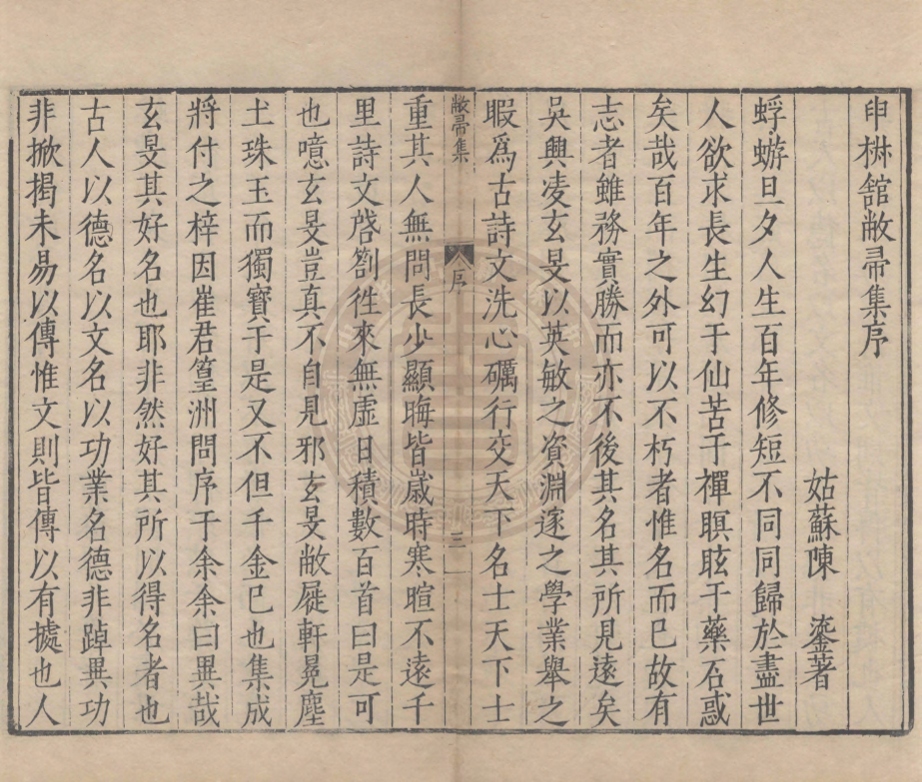 申椒館敝帚集序
姑蘇陳 瑬著
蜉蝣旦夕人生百年修短不同同歸於盡世
人欲求長生幻于仙苦于禪瞑眩于藥石惑
矣哉百年之外可以不朽者惟名而已故有
志者雖務實勝而亦不後其名其所見遠矣
吳興凌玄旻以英敏之資淵邃之學業舉之
暇爲古詩文洗心礪行交天下名士天下士
敝帚集 序 三
重其人無問長少顯晦皆嵗時寒暄不遠千
里詩文啓劄徃來無虛日積數百首曰是可
也噫玄旻豈真不自見邪玄旻敝屣軒冕塵
土珠玉而獨寶于是又不但千金已也集成
將付之梓因崔君篁洲問序于余余曰異哉
玄旻其好名也耶非然好其所以得名者也
古人以德名以文名以功業名德非踔異功
非掀揭未易以傳惟文則皆傳以有據也人